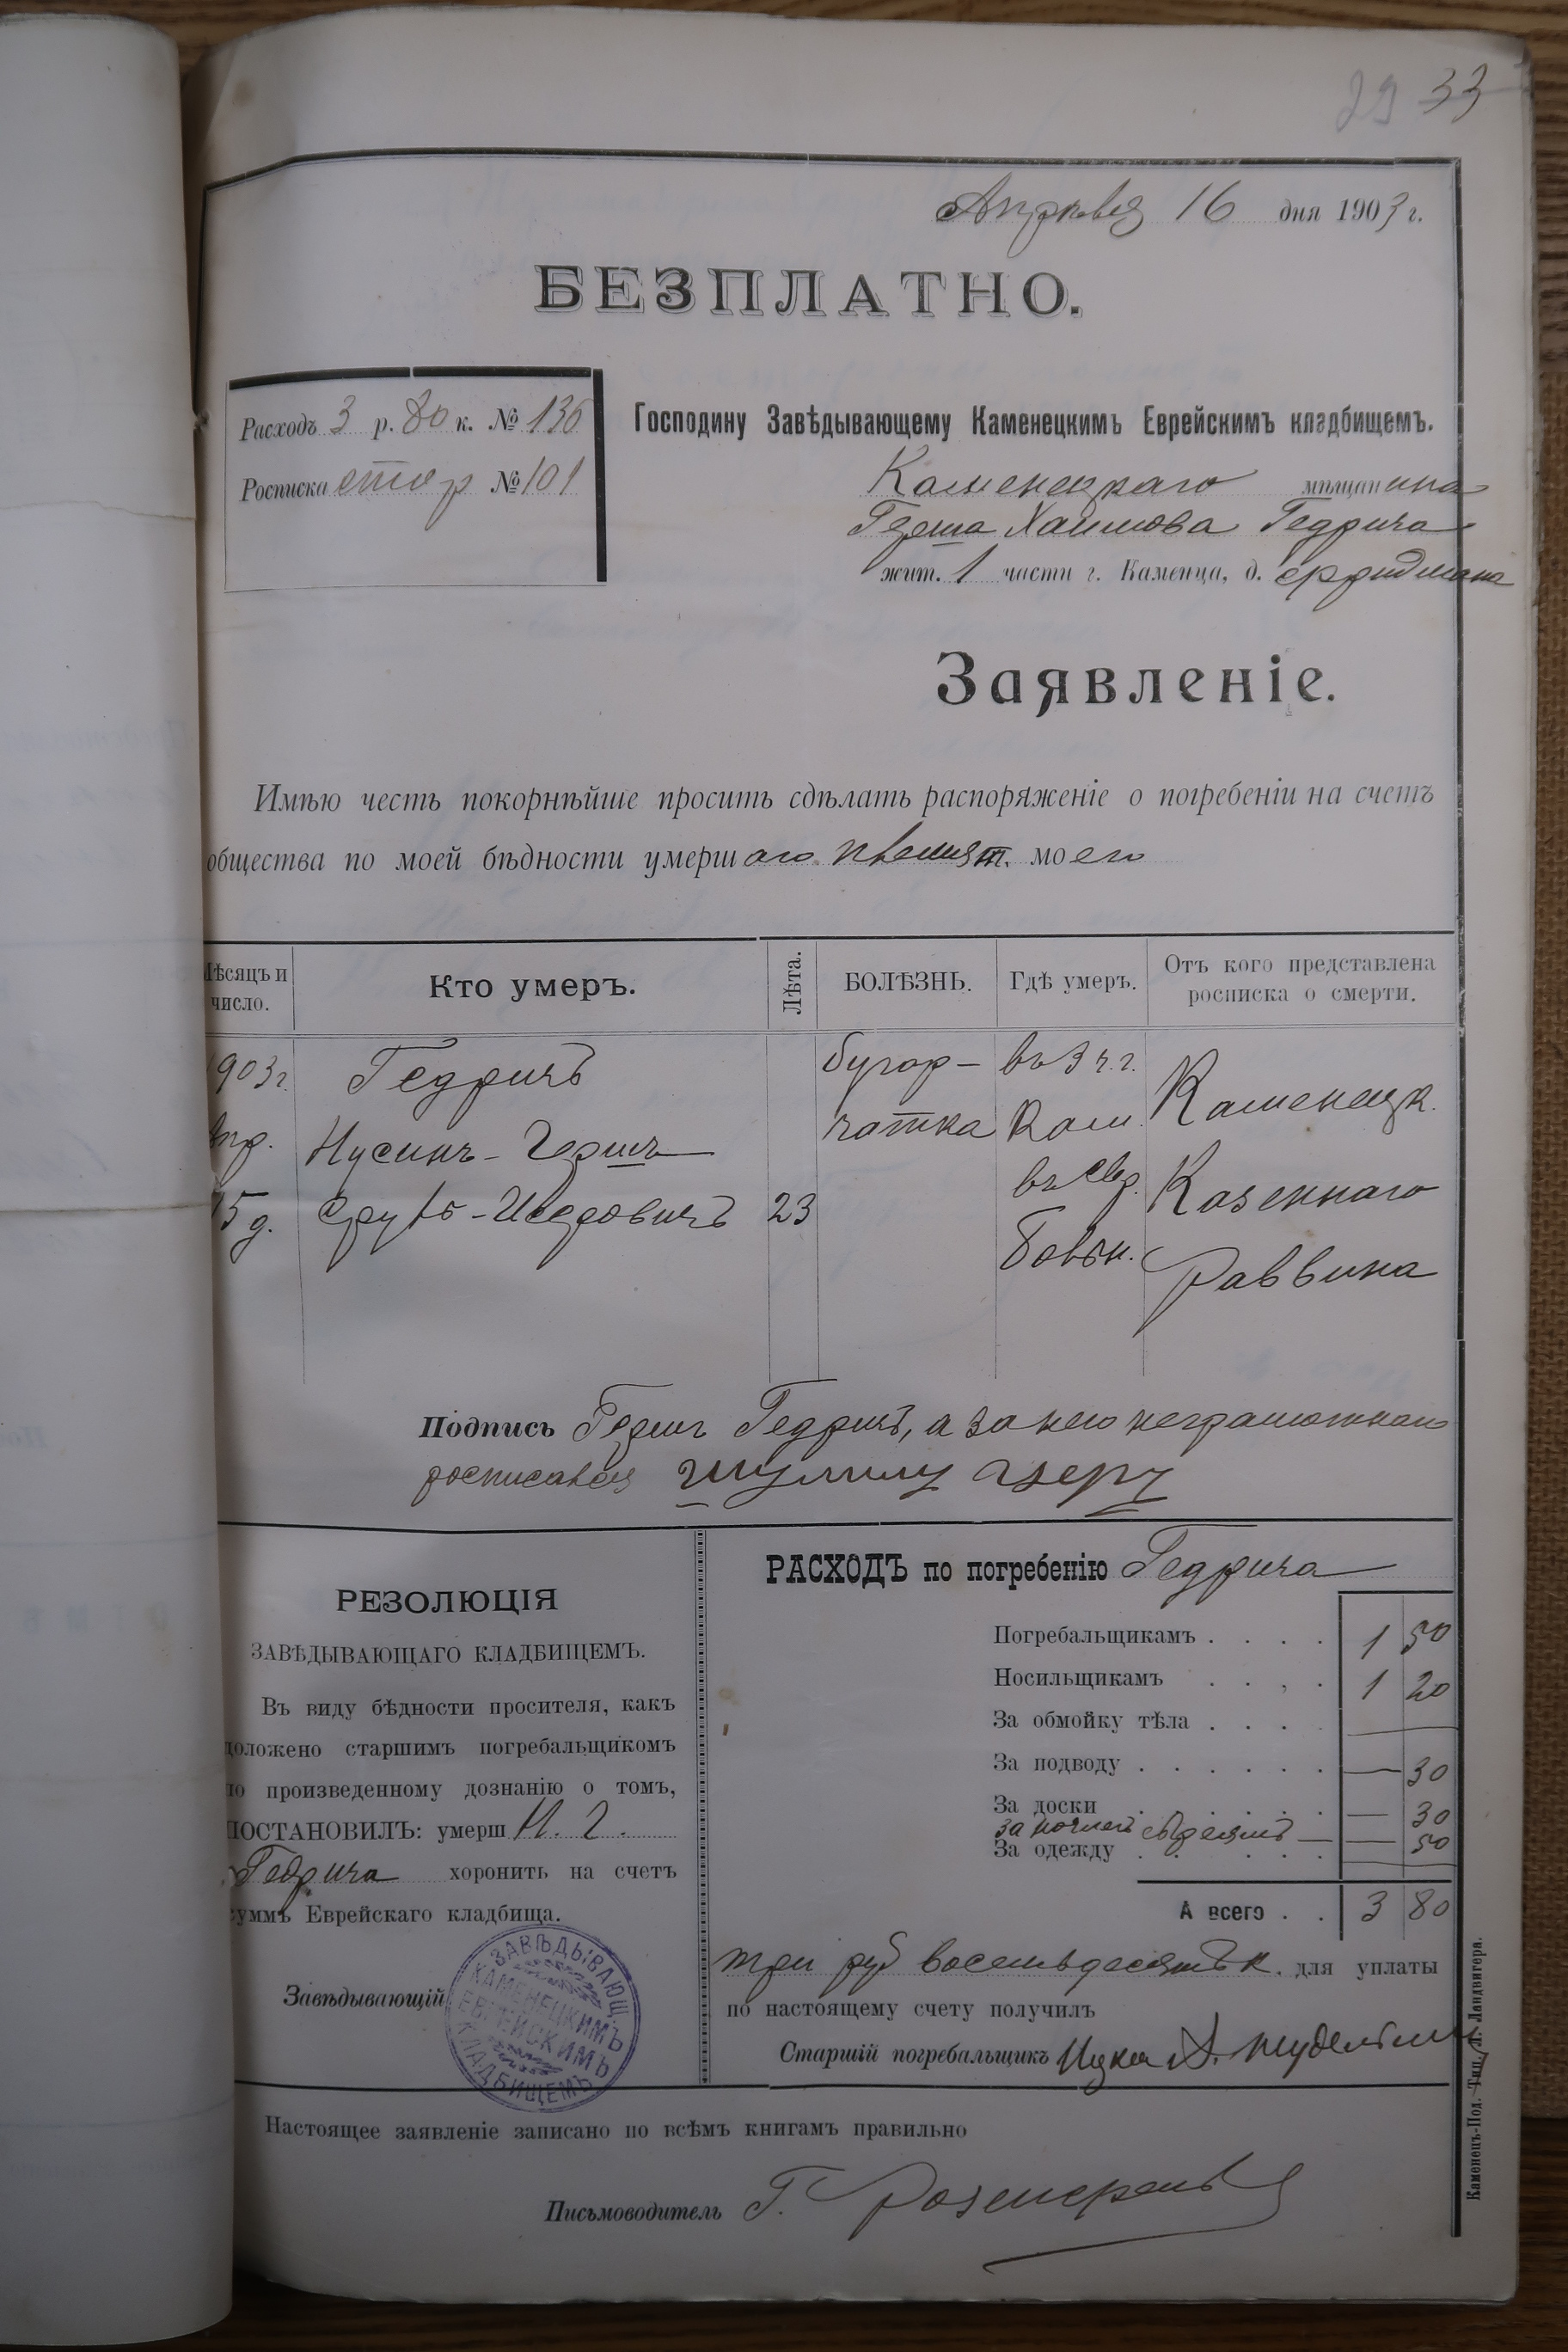 29 33
Апрѣля 16 дня 1903 г.
БЕЗПЛАТНО.
Расходъ 3 р. 80 к. № 136
Росписка стор № 101
Господину Завѣдывающему Каменецкимъ Еврейскимъ кладбищемъ.
Каменецкаго мѣщанина
Герша Хаимова Гедрича
жит. 1 части г. Каменца, д. Фридмана
Заявленіе.
Имѣю честь покорнѣйше просить сдѣлать распоряженіе о погребеніи на счетъ
общества по моей бѣдности умершаго племян. моего
Мѣсяцъ и число.
Кто умеръ.
Лѣта.
БОЛѢЗНЬ.
Гдѣ умеръ.
Отъ кого представлена росписка о смерти.
903 г.
Апр.
15 д.
Гедричъ
Нусинъ-Гершъ
23
бугор-
чатка
въ 3 ч. г.
Кам.
въ Евр.
Больн.
Каменецк.
Казеннаго
Раввина
Подпись Гершъ Гедричъ, а за него неграмотнаго
росписался
РЕЗОЛЮЦІЯ
ЗАВѢДЫВАЮЩАГО КЛАДБИЩЕМЪ.
Въ виду бѣдности просителя, какъ
доложено старшимъ погребальщикомъ
по произведенному дознанію о томъ,
ПОСТАНОВИЛЪ: умерш Н. Г.
Гедрича хоронить на счетъ
суммъ Еврейскаго кладбища.
Завѣдывающій
ЗАВѢДЫВАЮЩ. КАМЕНЕЦКИМЪ ЕВРЕЙСКИМЪ КЛАДБИЩЕМЪ
РАСХОДЪ по погребенію Гедрича
Погребальщикамъ . . . . 1 50
Носильщикамъ . . . . 1 20
За обмойку тѣла . . . . —
За подводу . . . . . . — 30
За доски . . . . . — 30
за ночлегъ — — 50
За одежду . . . . . . —
А всего . . 3 80
три руб восемьдесятъ к. для уплаты
по настоящему счету получилъ
Старшій погребальщикъ Ицко
Настоящее заявленіе записано по всѣмъ книгамъ правильно
Письмоводитель Г.
Каменецъ-Под. Тип. Л. Ландвигера.